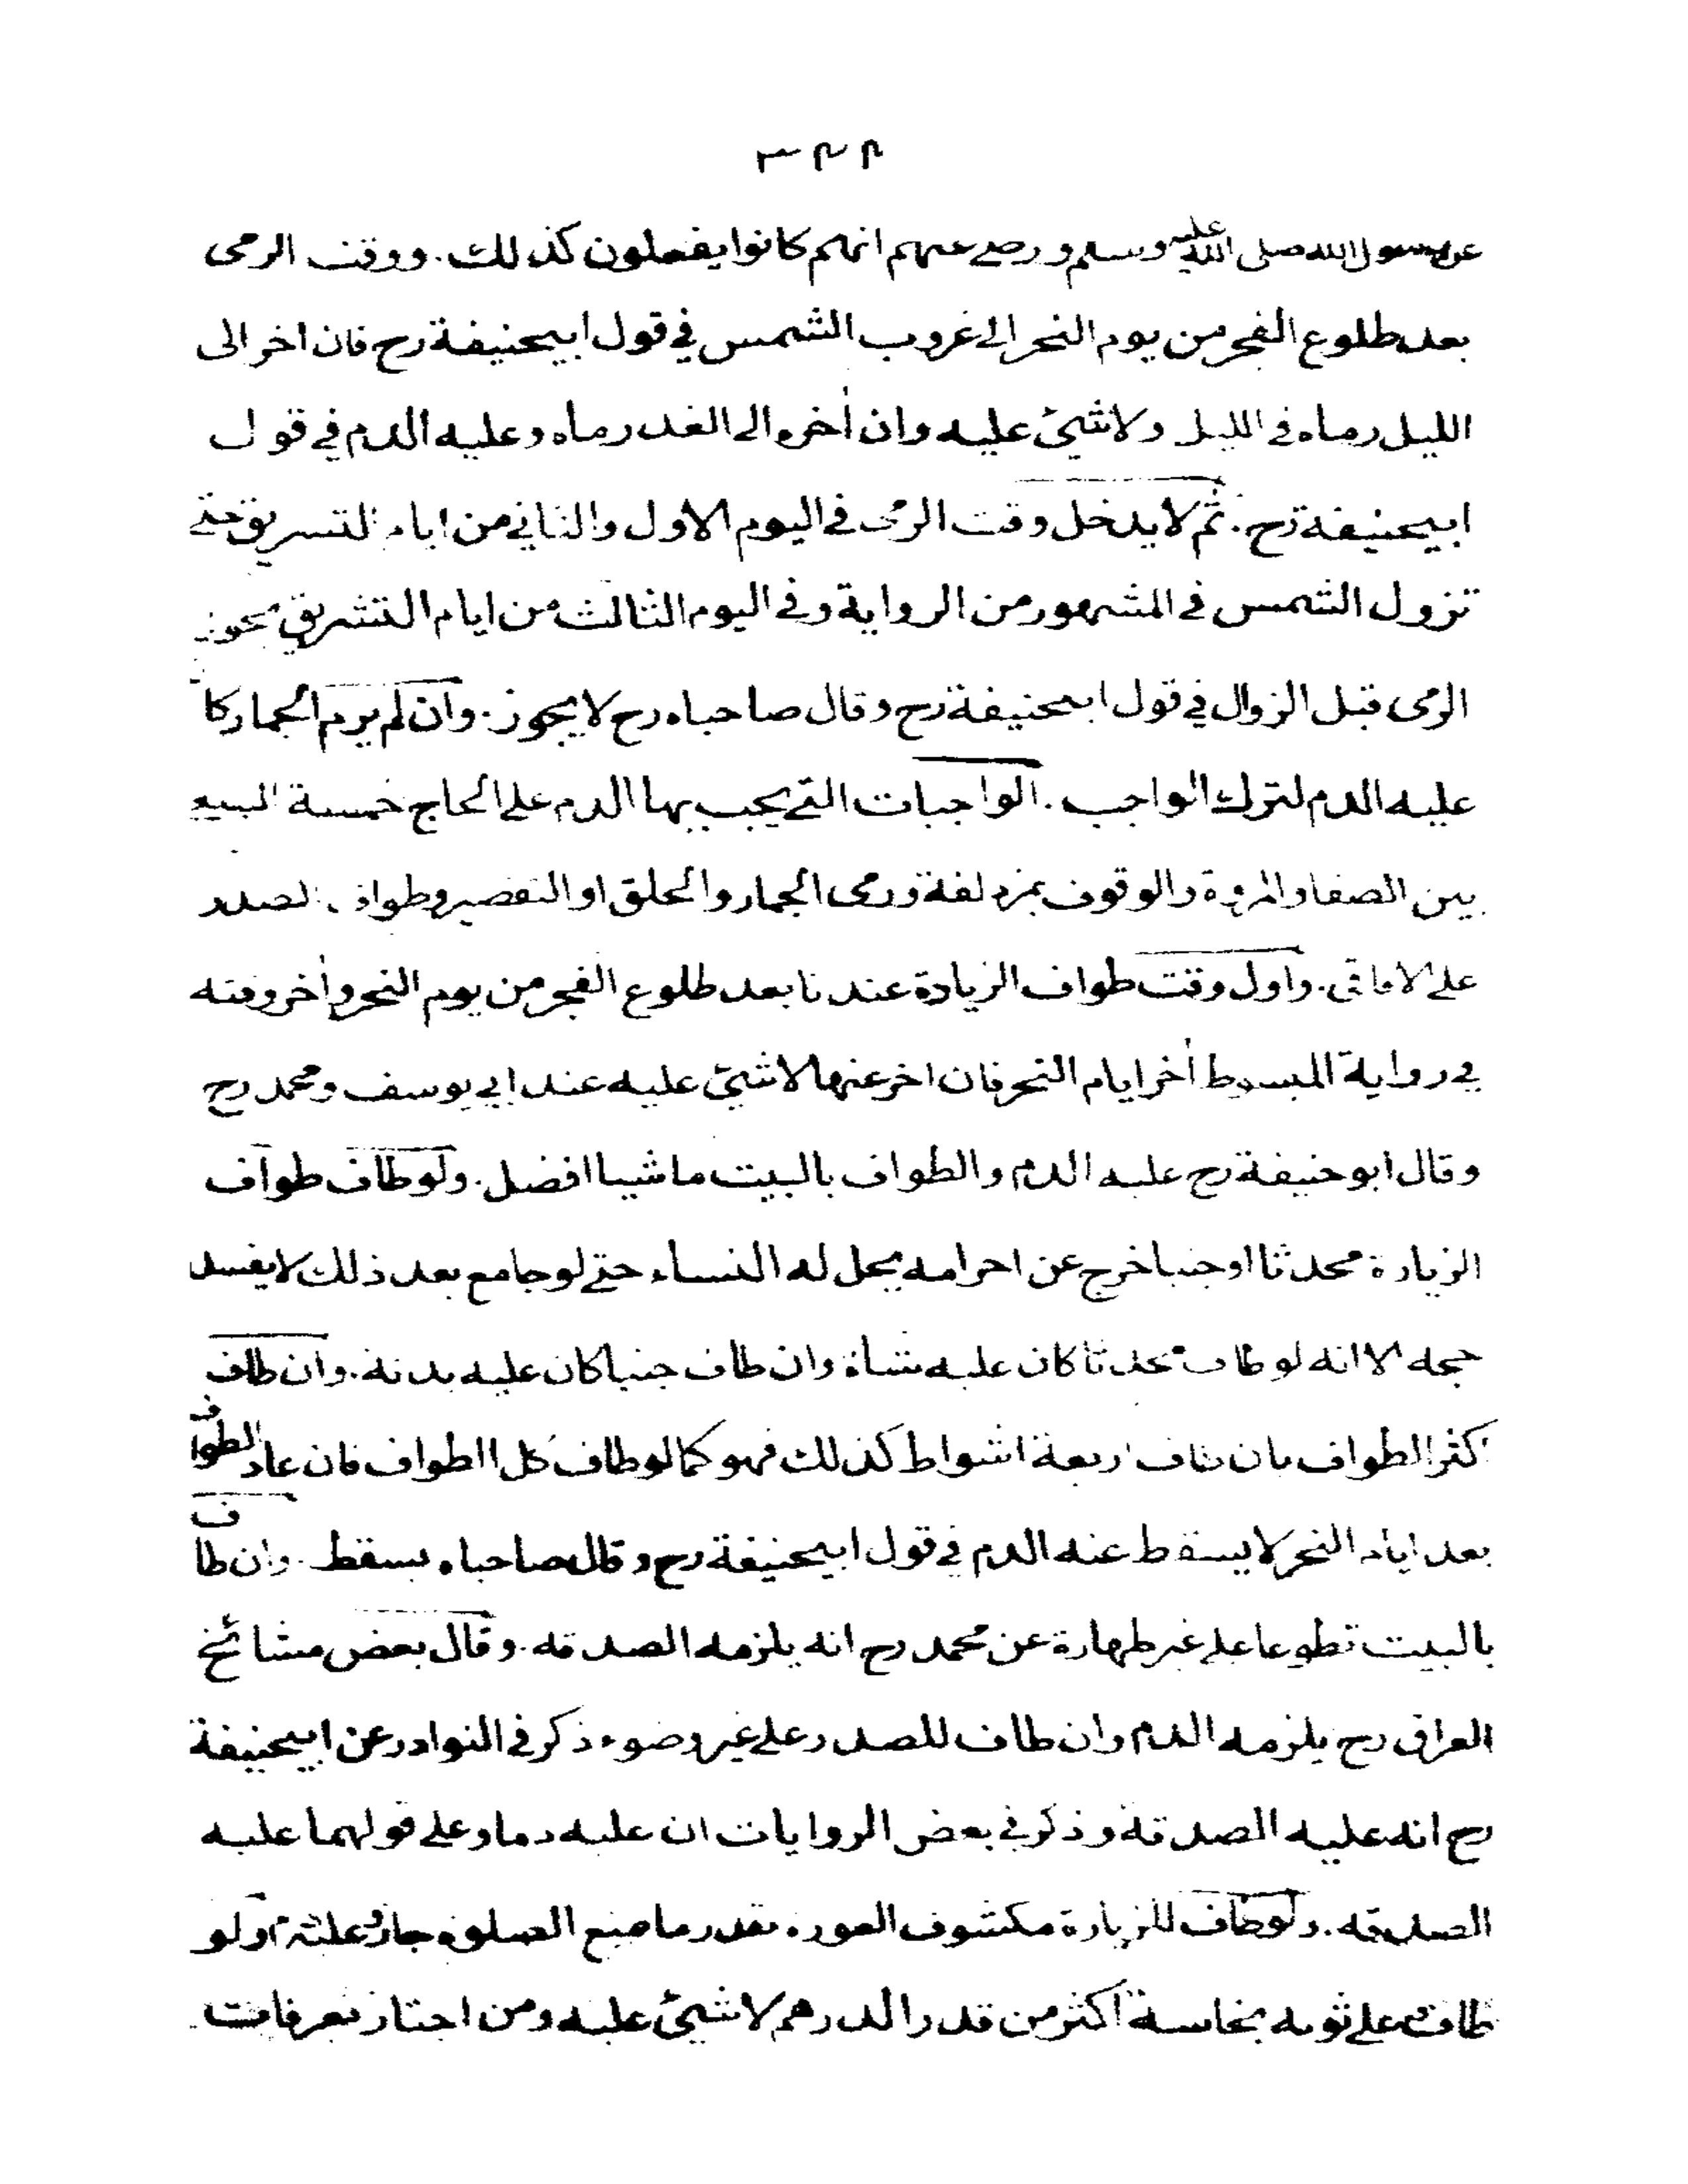 ٣٤٤
عن رسول الله صلى الله عليه وسلم ورضے عنهم انهم كانوا يفعلون كذلك . ووقت الرمى
بعد طلوع الفجر من يوم النحر الى غروب الشمس فى قول ابيحنيفة رح فان اخر الى
الليل رماه فى الليل ولا شئ عليه وان أخره الى الغد رماه وعليه الدم فى قول
ابيحنيفة رح . ثم لا يدخل وقت الرمى فى اليوم الاول والثانى من ايام التشريق حتى
تزول الشمس فى المشهور من الرواية وفى اليوم الثالث من ايام التشريق يجوز
الرمى قبل الزوال فى قول ابيحنيفة رح وقال صاحباه رح لا يجوز . وان لم يرم الجمار كا
عليه الدم لترك الواجب . الواجبات التى يجب بها الدم على الحاج خمسة السعى
بين الصفا والمروة والوقوف بمزدلفة ورمى الجمار والحلق او التقصير وطواف الصدر
على الافاقى . واول وقت طواف الزيادة عندنا بعد طلوع الفجر من يوم النحر وأخر وقته
فى رواية المبسوط أخر ايام النحر فان اخر عنها لا شئ عليه عند ابى يوسف ومحمد رح
وقال ابو حنيفة رح عليه الدم والطواف بالبيت ماشيا افضل . ولو طاف طواف
الزيارة محدثا او جنبا خرج عن احرامه يحل له النساء حتى لو جامع بعد ذلك لا يفسد
حجه الا انه لو طاف محدثا كان عليه شاة وان طاف جنبا كان عليه بدنة . وان طاف
اكثر الطواف بان طاف اربعة اشواط كذلك فهو كما لو طاف كل الطواف فان عاد الطواف
بعد ايام النحر لا يسقط عنه الدم فى قول ابيحنيفة رح وقال صاحباه يسقط . وان طاف
بالبيت تطوعا على غير طهارة عن محمد رح انه يلزمه الصدقه . وقال بعض مشائخ
العراق رح يلزمه الدم وان طاف للصدر على غير وضوء ذكر فى النوادر عن ابيحنيفة
رح انه عليه الصدقة وذكر فى بعض الروايات ان عليه دما وعلى قولهما عليه
الصدقه . ولو طاف للزيارة مكشوف العوره بقدر ما منع الصلوة جاز وعليه دم ولو
طاف وعلى ثوبه نجاسة اكثر من قدر الدرهم لا شئ عليه ومن اجتاز بعرفات